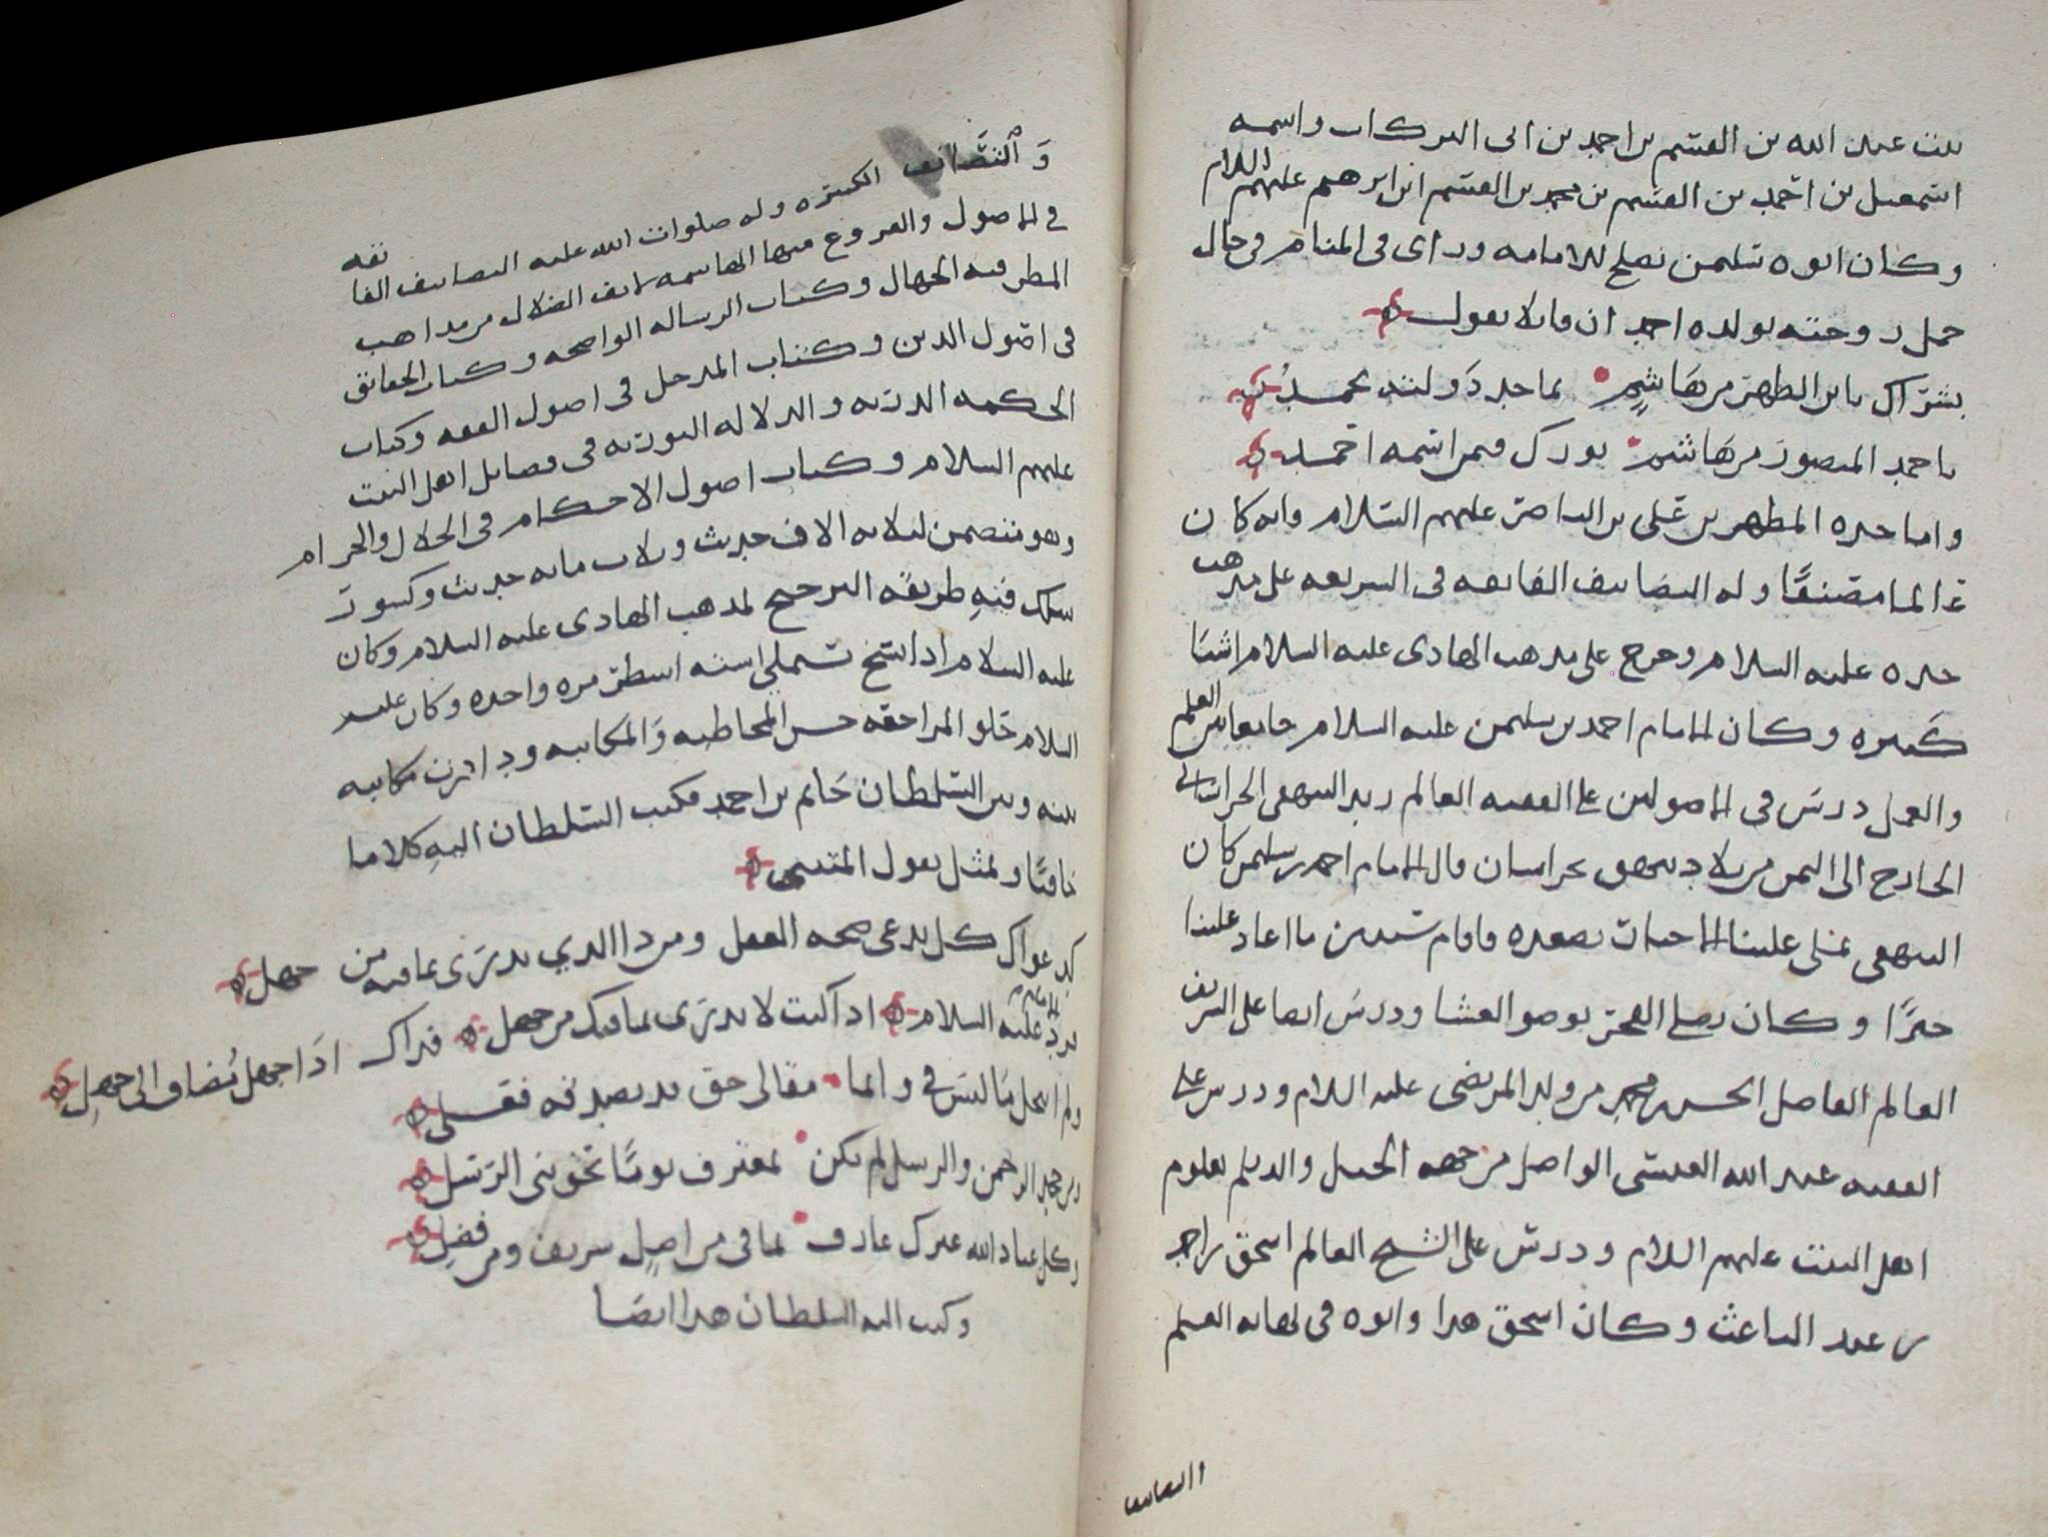 بنت عبد الله بن القسم بن احمد بن ابى البركات واسمه
اسمعيل بن احمد بن القسم بن محمد بن القسم ابن ابرهيم عليهم السلام
وكان ابوه سليمن يصلح للامامه وراى فى المنام فى حال
حمل زوجته بولده احمد ان قايلا يقول
بشراك يابن الطهر من هاشم بماجد دولته تحمد
باحمد المنصور من هاشم بورك فيمن اسمه احمد
واما جده المطهر بن على بن الناصر عليهم السلام فانه كان
عالما مصنفا وله التصانيف الفايقه فى الشريعه على مذهب
جده عليه السلام وخرج على مذهب الهادى عليه السلام اشيا
كثيره وكان الامام احمد بن سليمن عليه السلام جامعا بين العلم
والعمل درس فى الاصولين على الفقيه العالم زيد البيهقى الخراسانى
الخارج الى اليمن من بلاد بيهق بخراسان قال الامام احمد بن سليمن كان
البيهقى يملى علينا الاحيات بصعده فاقام سنتين ما اعاد علينا
خبرا وكان يصلى الفجر بوضو العشا ودرس ايضا على الشريف
العالم الفاضل الحسن بن محمد من ولد المرتضى عليه السلام ودرس على
الفقيه عبد الله العنسى الواصل من جهه الجيل والديلم بعلوم
اهل البيت عليهم السلام ودرس على الشيخ العالم اسحق بن احمد
بن عبد الباعث وكان اسحق هذا وابوه فى نهايه العلم
والتصانيف
والتصانيف الكثيره وله صلوات الله عليه التصانيف الفايقه
فى الاصول والفروع منها الهاشمه لانف الضلال من مذاهب
المطرفيه الجهال وكتاب الرساله الواضحه وكتاب الحقايق
فى اصول الدين وكتاب المدخل فى اصول الفقه وكتاب
الحكمه الدريه والدلاله النوريه فى فضايل اهل البيت
عليهم السلام وكتاب اصول الاحكام فى الحلال والحرام
وهو يتضمن ثلاثه الاف حديث وثلاث مايه حديث وكسور
سلك فيه طريقه الترجيح لمذهب الهادى عليه السلام وكان
عليه السلام اذا انتسخ تسملى استه اسطر مره واحده وكان عليه
السلام حلو المراجعه حسن المخاطبه والمكاتبه ودارت مكاتبه
بينه وبين السلطان حاتم بن احمد فكتب السلطان اليه كلاما
جافيا وتمثل بقول المتنبى
كدعواك كل يدعى صحه العقل ومن ذا الذي يدرى بما فيه من جهل
فرد الامام عليه السلام اذا كنت لا تدرى بما فيك من جهل فذاك اذا جهل مضاف الى جهل
ولم انتحل ما ليس فى وانما مقالى حق قد يصدقه فعلى
ومن يجحد الرحمن والرسل لم يكن بمعترف يوما بحق بنى الرسل
وكل عباد الله غيرك عارف بما فى من اصل شريف ومن فضل
وكتب اليه السلطان هذا ايضا